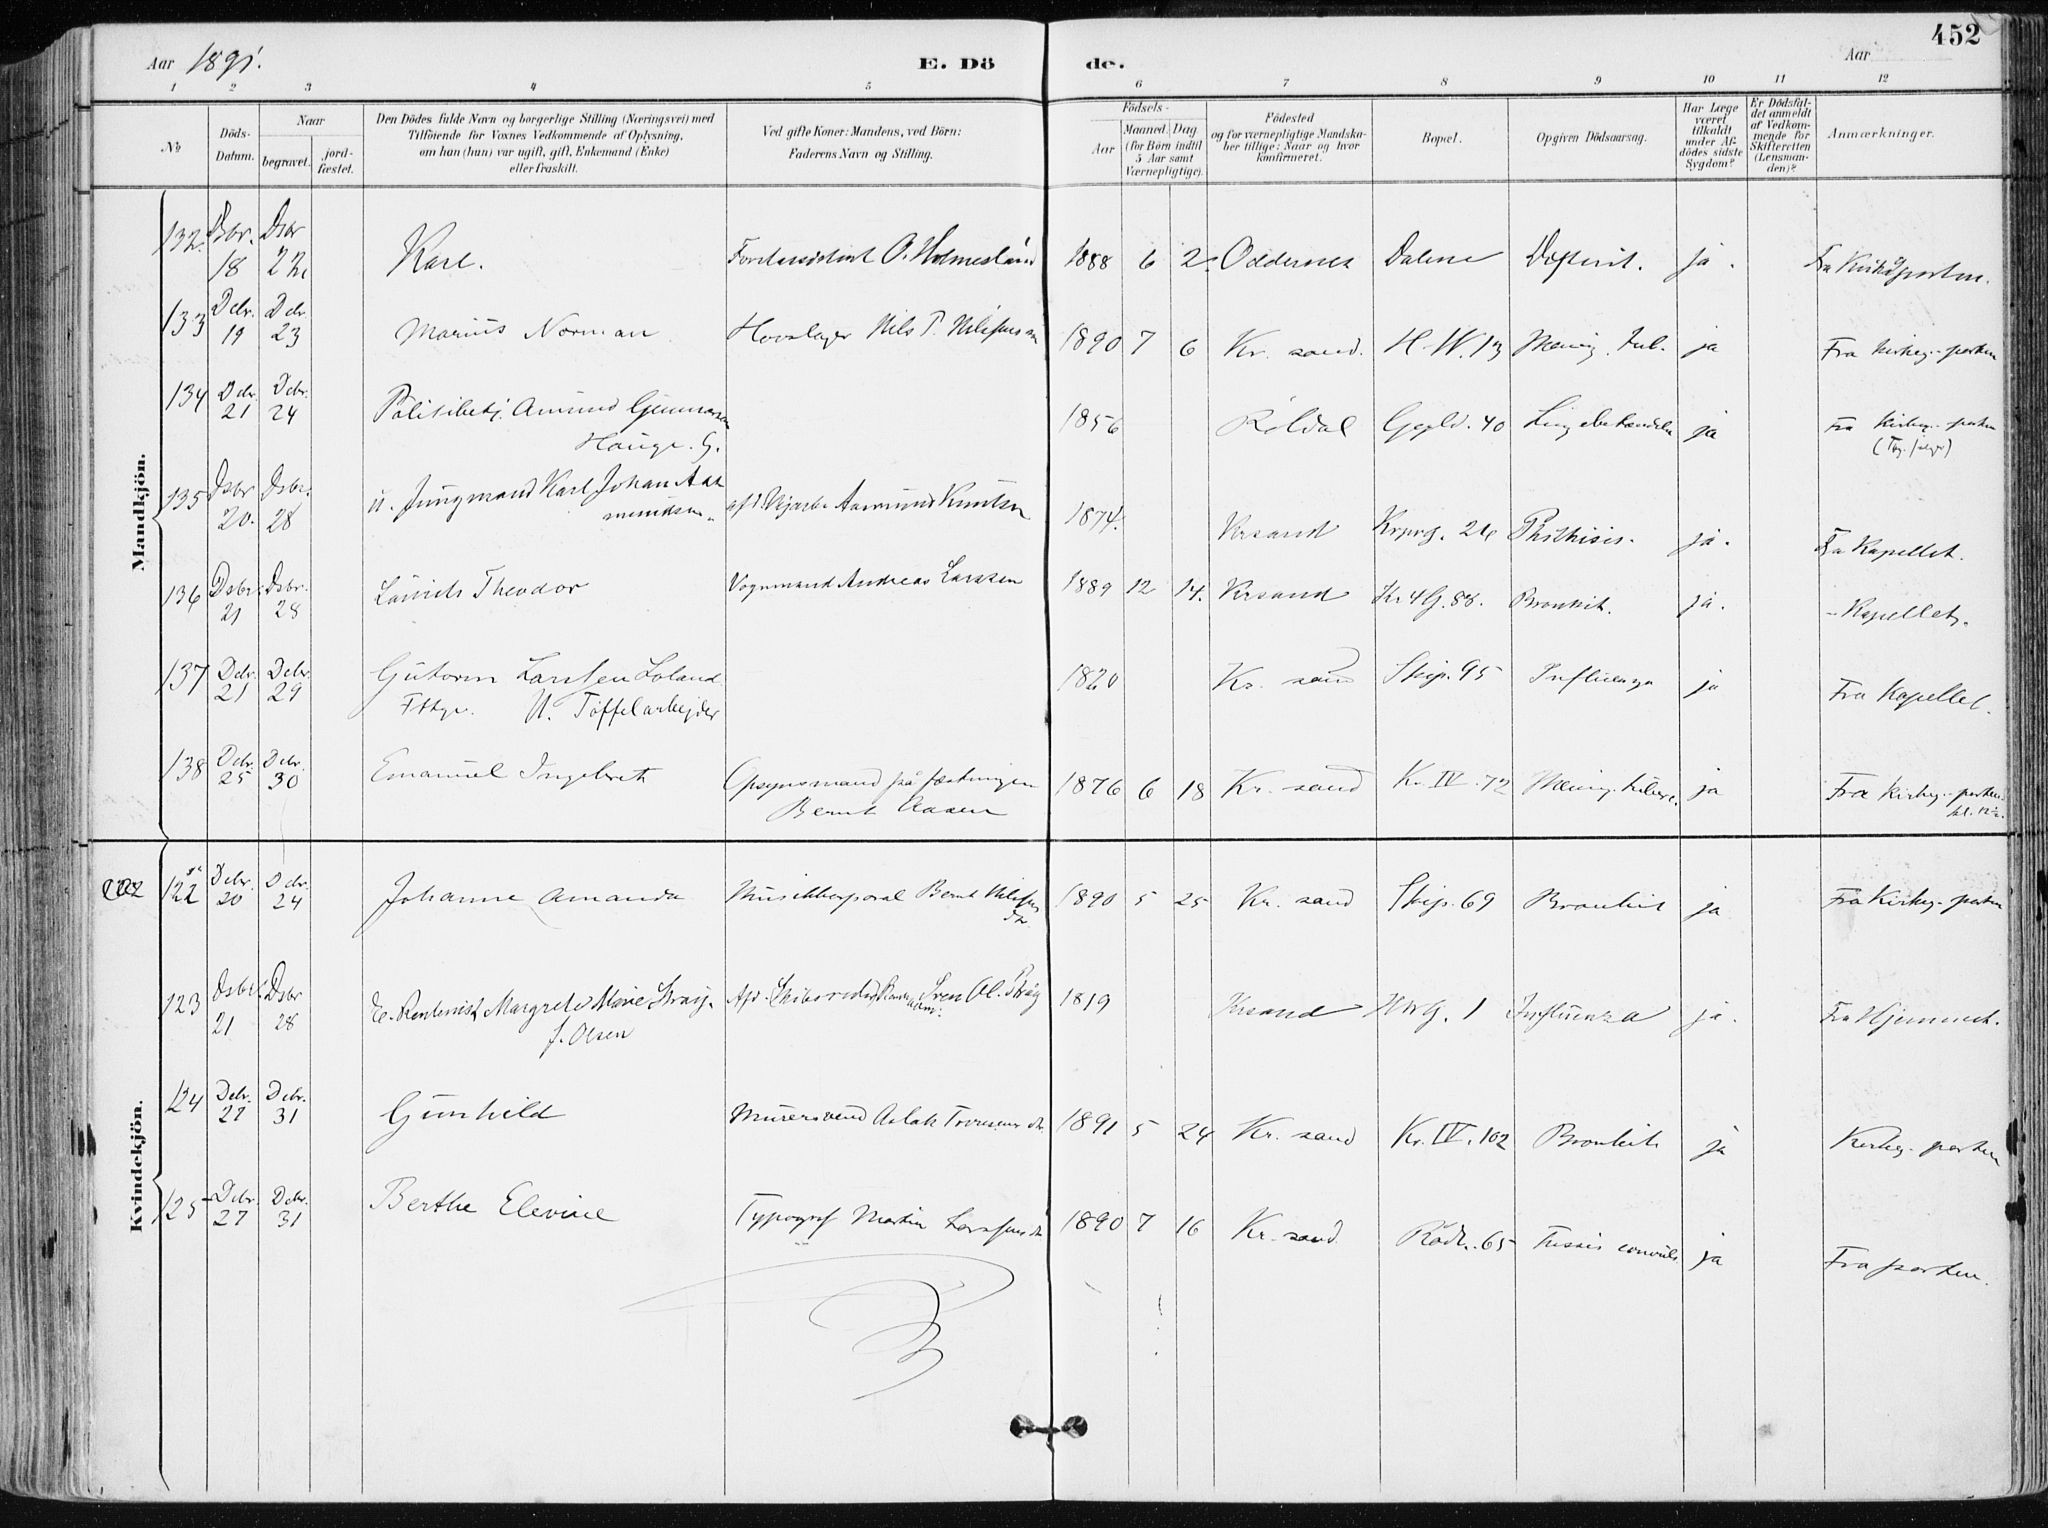 452
Aar 1891.
E. Döde.
Aar
1 2 3 4 5 6 7 8 9 10 11 12
No
Döds-Datum.
Naar
begravet.
jord-fæstet.
Den Dödes fulde Navn og borgerlige Stilling (Næringsvei) med
Tilföiende for Voxnes Vedkommende af Oplysning,
om han (hun) var ugift, gift, Enkemand (Enke)
eller fraskilt.
Ved gifte Koner: Mandens, ved Börn:
Faderens Navn og Stilling.
Födsels-
Aar
Maaned. Dag
(for Börn indtil
5 Aar samt
Værnepligtige).
Födested
og for værnepligtige Mandska-
ber tillige: Naar og hvor
konfirmeret.
Bopæl.
Opgiven Dödsaarsag.
Har Læge
været
tilkaldt
under Af-
dödes sidste
Sygdom?
Er Dödsfal-
det anmeldt
af Vedkom-
mende for
Skifteretten
(Lensman-
den)?
Anmærkninger.
Mandkjön.
132. Dsbr. 18 Dsbr 22 Karl. O. Holmesland 1888 6 2. Oddernes Dalene ja. Fra Kirkegporten.
133 Dcbr. 19 Dcbr. 23 Marius Norman Hovslager Nils T. Nilssens sn 1890 7 6 Kr. sand. H. W. 13 Mening. tub. ja Fra Kirkeg.-porten
134 Dcbr. 21 Dcbr. 24 Politibetj. Amund Gunnarsen
Hauge. G. 1856 Röldal Ggld. 40 ja Fra Kirkeg.-porten
135 Dsbr 20. Dsbr. 28 u. Jungmand Karl Johan Aa
mundsen afd. Aamund Knutsen 1874. Krsand 26 Phthisis. ja. Fra Kapellet.
136 Dsbr. 21 Dsbr. 28 Laurits Theodor Vognmand Andreas Larssen 1889 12 14. Krsand Kr 4 G. 88. Bronkit. ja. - Kapellet.
137 Dcbr. 21 Dcbr. 29 Gutorm Larssen Loland
U. Töffelarbejder 1820 Kr. sand Skip. 95 Influenza ja Fra Kapellet.
138 Dcbr. 25 Dcbr. 30 Emanuel Ingebret Opsynsmand på fæstningen
Bernt Aasen 1876 6 18 Kr. sand Kr. IV. 72 ja Fra Kirkeg.-porten
kl. 12½.
Kvindekjön.
122 Dcbr. 20 Dcbr. 24 Johanne Amanda Musikkorporal Bernt Nilssens
dtr. 1890 5 25 Kr. sand Skip. 69 Bronkit ja Fra Kirkeg-porten
123 Dsbr. 21 Dsbr 28 E. Margrete Marie
f. Olsen Afd. Sven Ol. 1819 Krsand 1 Influenza ja. Fra Hjemmet.
124 Dcbr. 27 Dcbr. 31 Gunhild Murersvend Aslak 1891 5 24 Kr. sand Kr. IV. 102 Bronkit ja Kirkeg-porten
125 Dcbr. 27 Dcbr. 31 Berthe Elevine Typograf Martin Larssens dtr 1890 7 16 Kr. sand. Rådh. 65 Tussis convuls. ja Fra porten.